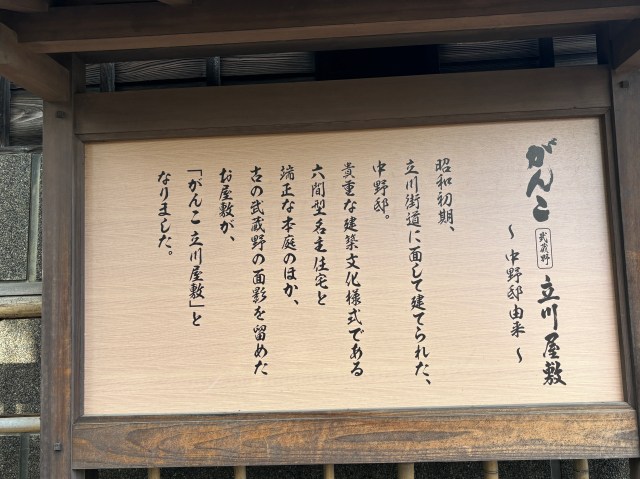 がんこ 武蔵野 立川屋敷
～ 中野邸由来 ～
昭和初期、
立川街道に面して建てられた、
中野邸。
貴重な建築文化様式である
六間型名主住宅と
端正な本庭のほか、
古の武蔵野の面影を留めた
お屋敷が、
「がんこ 立川屋敷」と
なりました。